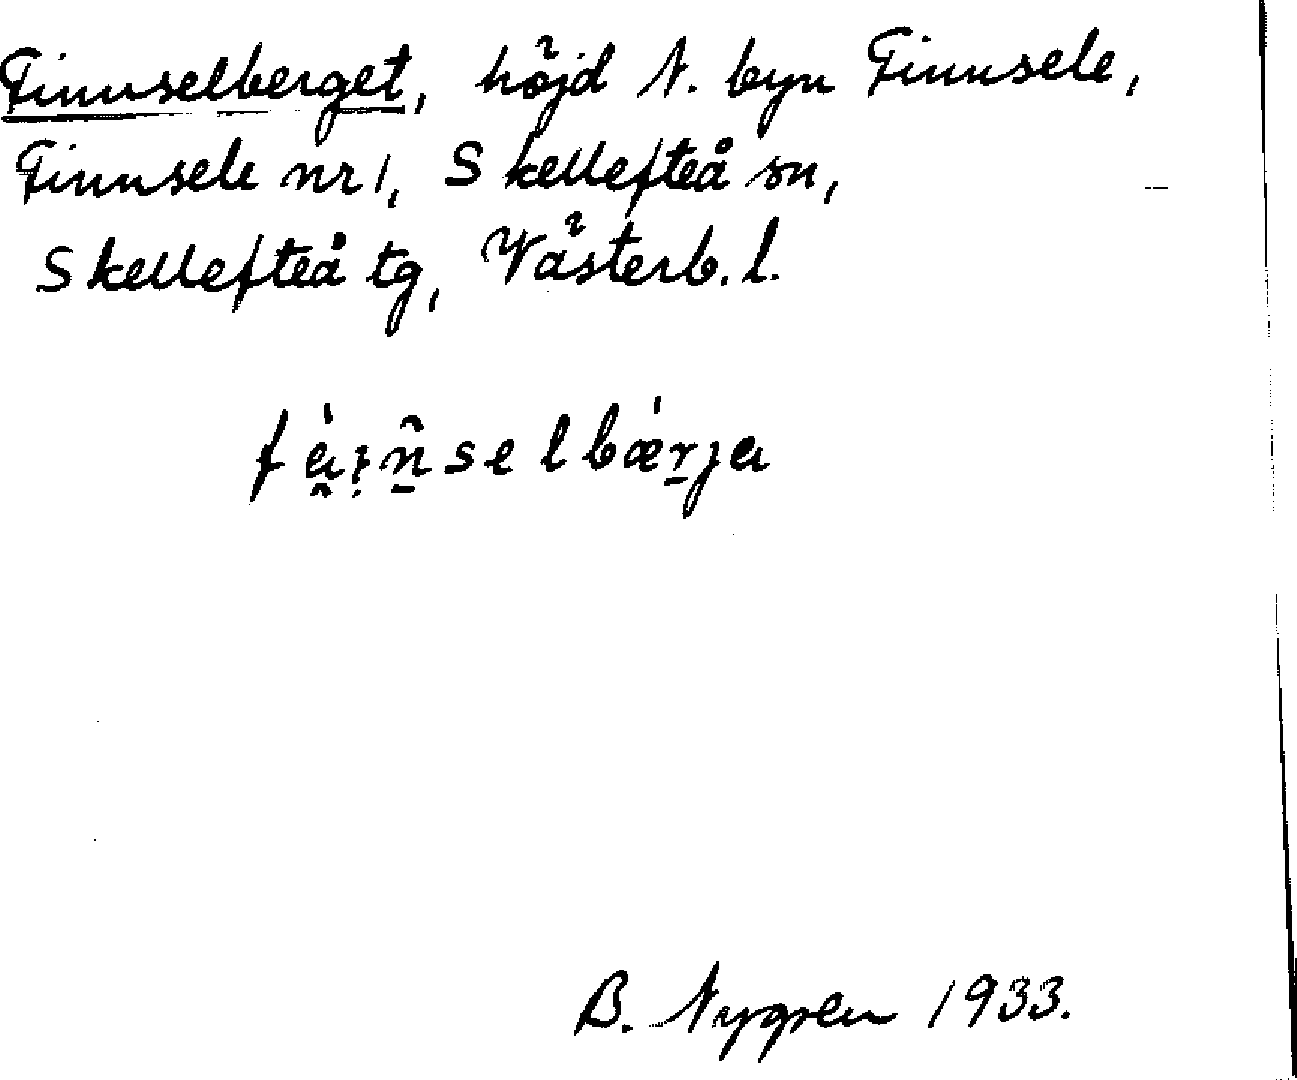 Finnselberget, höjd N. byn Finnsele,
Finnsele nr 1, Skellefteå sn,
Skellefteå tg, Västerb. l.
B. Nygren 1933.